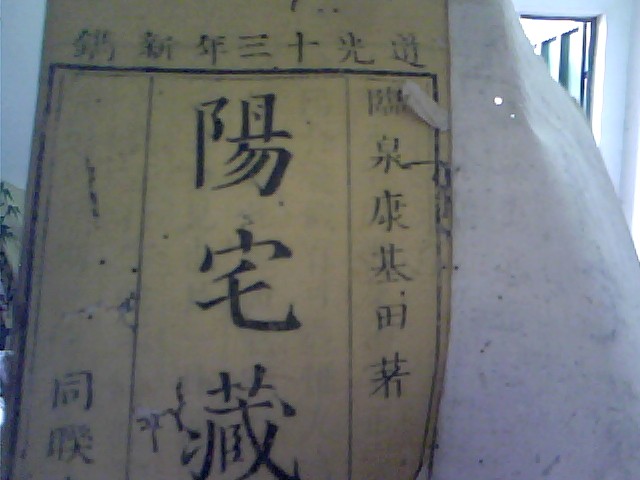 道光十三年新鐫
臨泉康基田著
陽宅藏
同